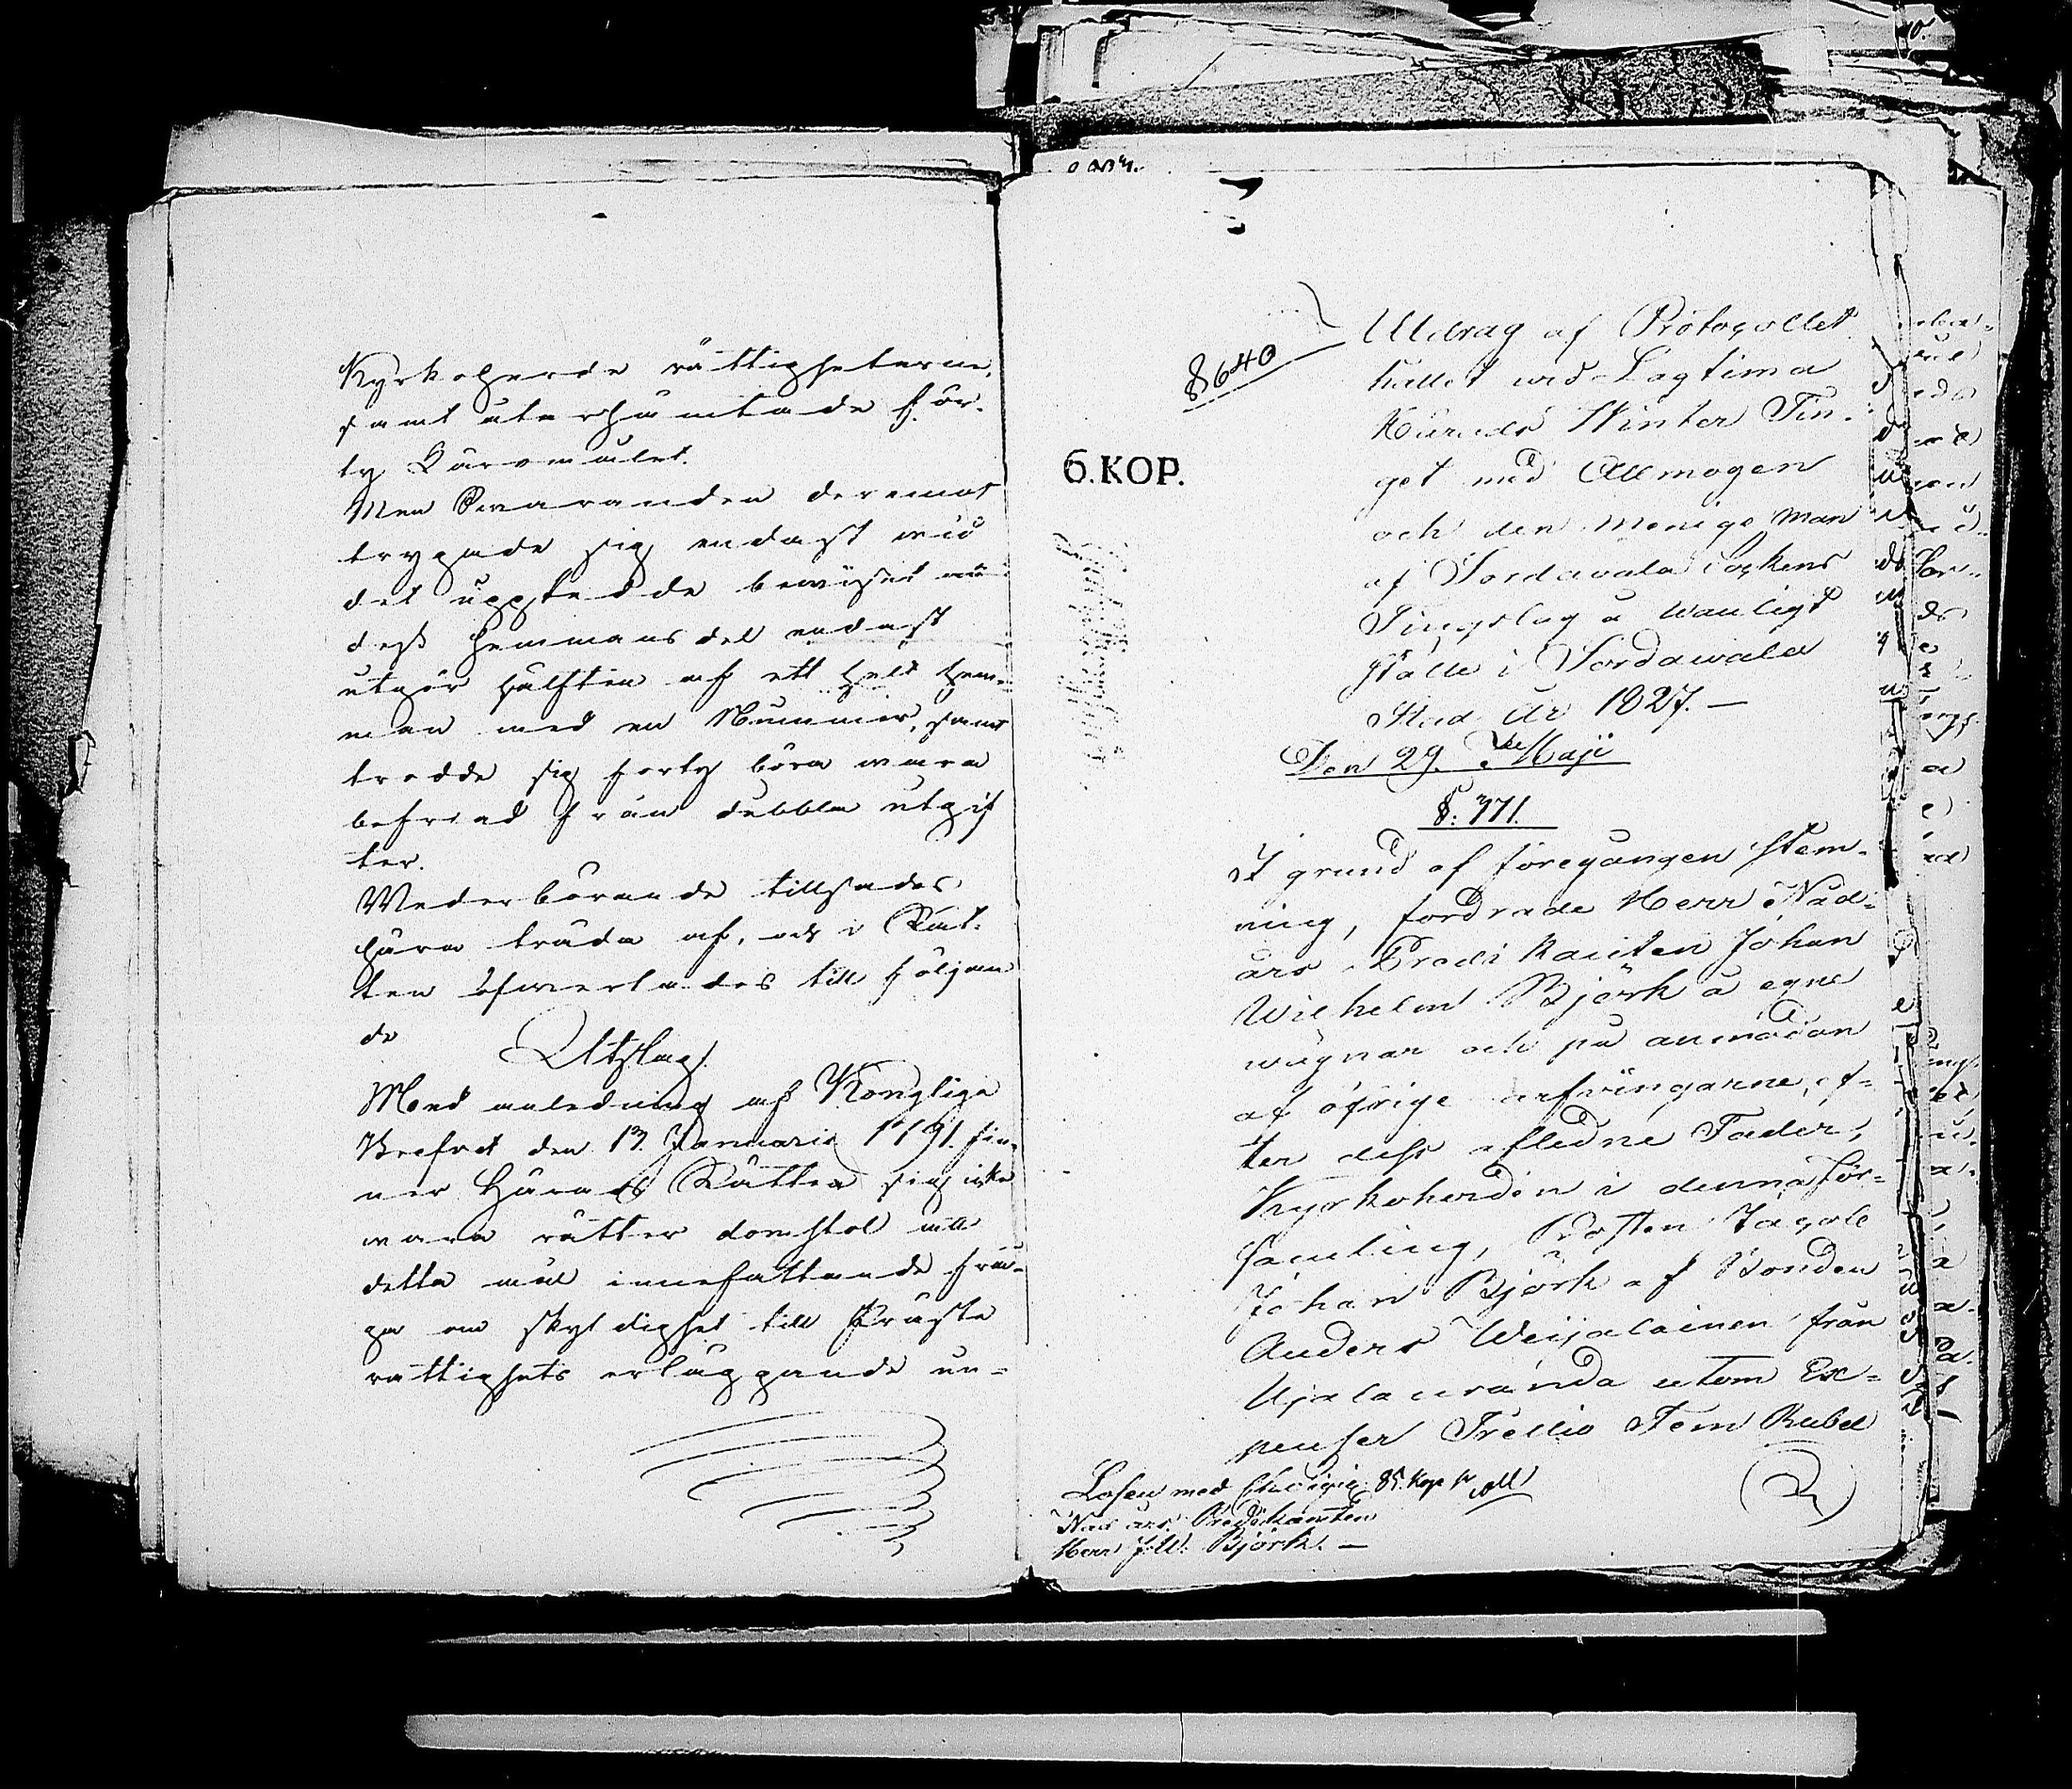 Kyrkoherde rättigheterne,
samt återhämtade för-
ty Käromålet.
Men Swaranden deremot
trygade sig endast wid
det uppstedde bewiset att
dess hemmansdel endast
utgör hälften af ett helt hem-
man med en Nummer, samt
trodde sig forty böra wara
befriad från dubbla utgif
ter.
Wederbörande tillsades
härå träda af, och i Rät-
ten öfwerlades till följan
de
Utslag.
Med anledning af Konglige
Brefvet den 13. Januarii 1791. fin-
ner Härads Rätten sig icke
wara rätter domstol att
detta mål innefattande frå-
ga om skyldighet till Präste
rättighets erläggande un-
8640
6.KOP.
Utdrag af Protogollet
hållet wid Lagtima
Härads Winter Tin-
get med Allmogen
och den menige man
af Sordavala Sockens
Tingslag å wanligt
ställe i Sordawala
Stad År 1827. —
Den 29. Maji
§: 371.
I grund af föregången stem-
ning, fordrade Herr Nåd-
års Predikanten Johan
Wilhelm Björk å egne
wägnar och på anmodan
af öfrige arfwingarne, ef-
ter dess afledne Fader,
Kyrkoherden i denna för-
samling, Prosten Jacob
Johan Björk af Bonden
Anders Weijalainen från
Ujalanranda utom Ex-
penser Trettio Fem Rubel
Lösen med Chartæ 85. Kop
Nåd års Predikanten
Herr J.W. Björk. —